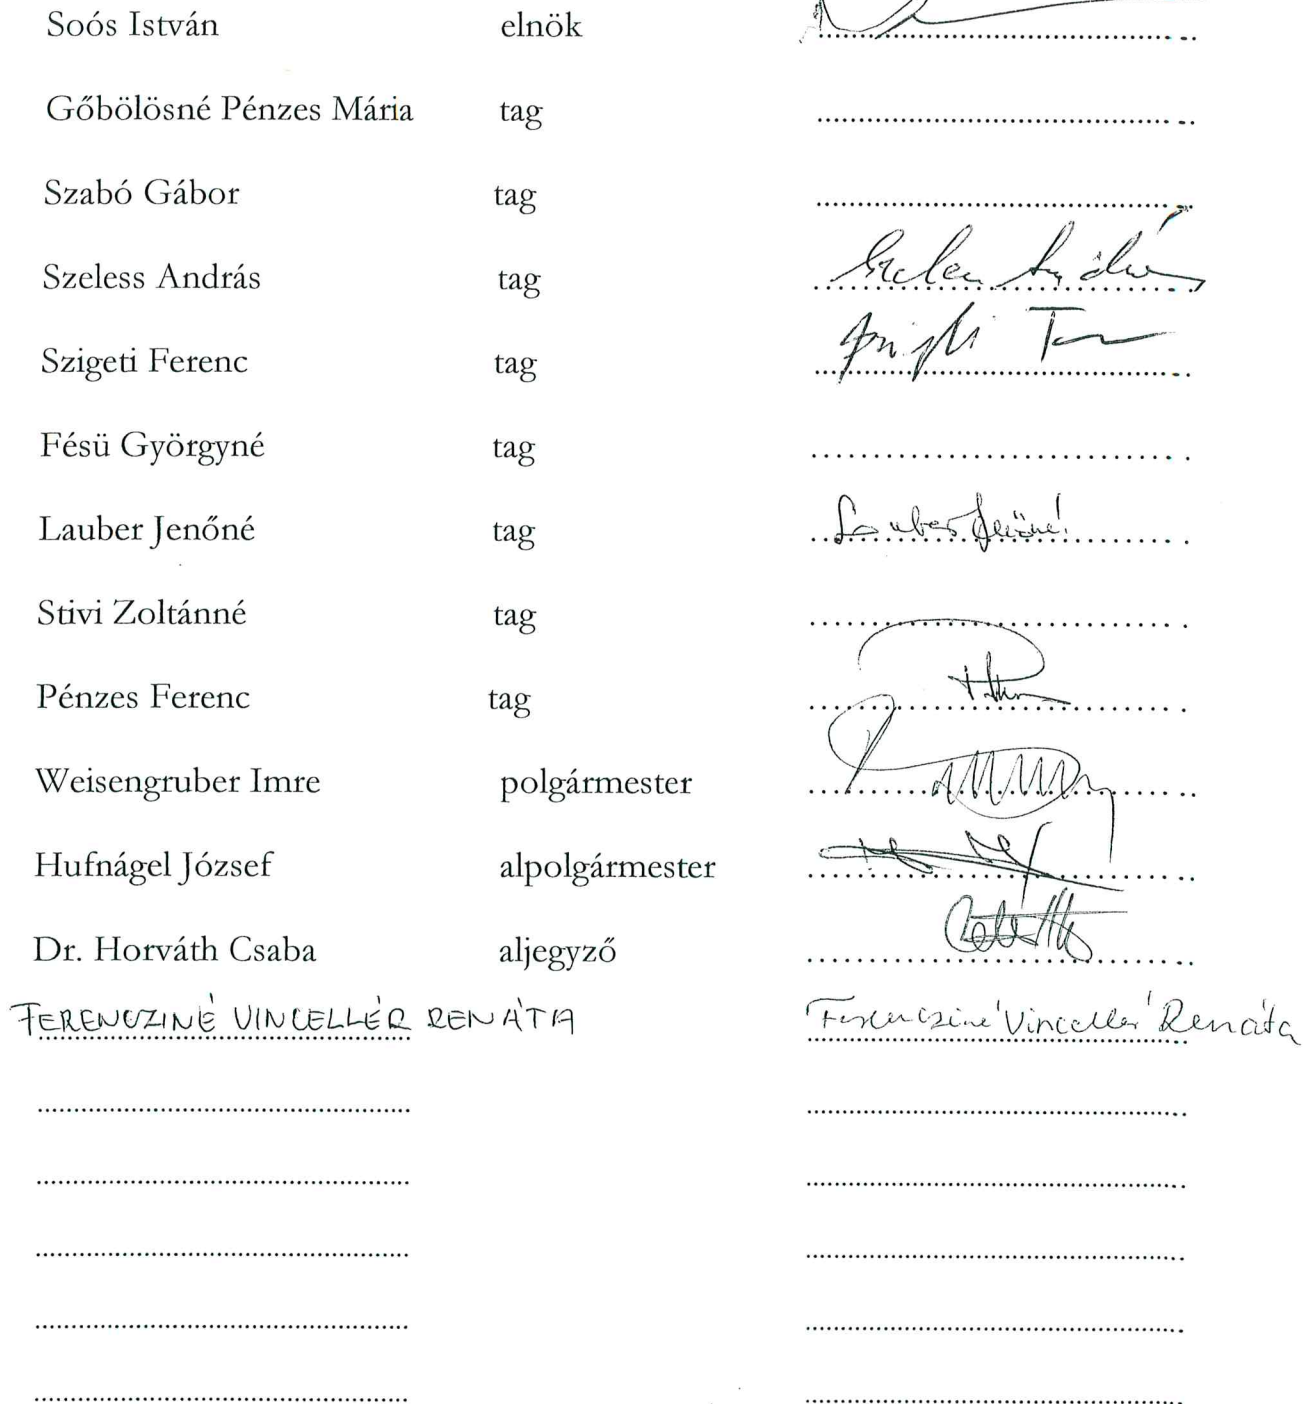 Soós István elnök
Gőbölösné Pénzes Mária tag
Szabó Gábor tag
Szeless András tag
Szigeti Ferenc tag
Fésü Györgyné tag
Lauber Jenőné tag Lauber Jenőné
Stivi Zoltánné tag
Pénzes Ferenc tag
Weisengruber Imre polgármester
Hufnágel József alpolgármester
Dr. Horváth Csaba aljegyző
FERENCZINÉ VINCELLÉR RENÁTA Ferencziné Vincellér Renáta